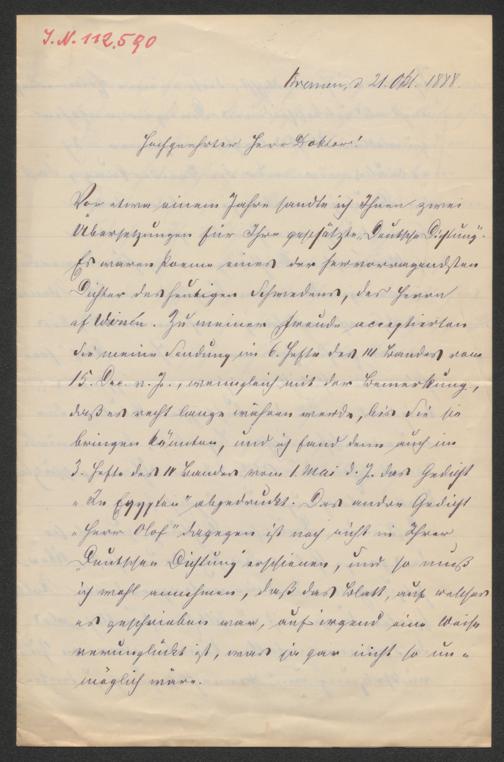 J.N. 112.590
Bremen, d. 21. Okt. 1888.
Hochgeehrter Herr Doktor!
Vor etwa einem Jahre sandte ich Ihnen zwei
Übersetzungen für Ihre geschätzte „Deutsche Dichtung“.
Es waren Poeme eines der hervorragendsten
Dichter des heutigen Schwedens, des Herrn
af Wirsén. Zu meiner Freude acceptierten
Sie meine Sendung im 6. Hefte des III Bandes vom
15. Dez. v. J., wenngleich mit der Bemerkung,
daß es recht lange währen werde, bis Sie sie
bringen könnten, und ich fand denn auch im
3. Hefte des IV Bandes vom 1. Mai d. J. das Gedicht
„In Egypten“ abgedruckt. Das andre Gedicht
„Herr Olof“ dagegen ist noch nicht in Ihrer
„Deutschen Dichtung“ erschienen, und so muß
ich wohl annehmen, daß das Blatt, auf welches
es geschrieben war, auf irgend eine Weise
verunglückt ist, was ja gar nicht so un-
möglich wäre.